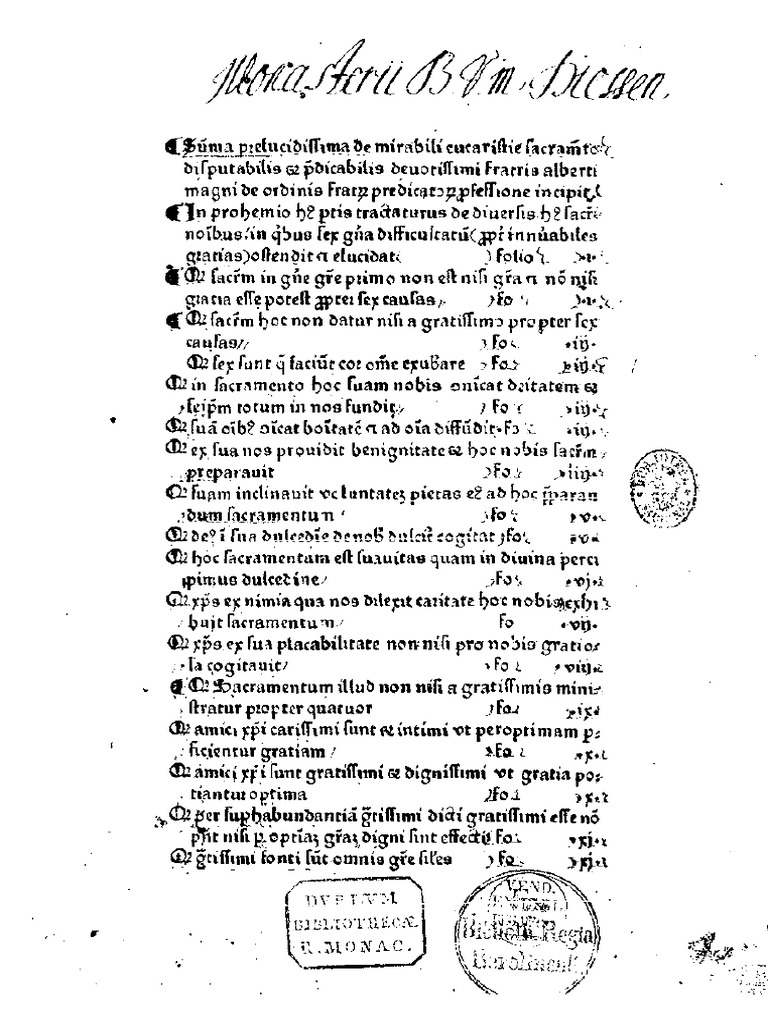 Monasterii B V m. Diessen.
¶ Sum̄ma prelucidissima de mirabili eucaristie sacram̄to
disputabilis ⁊ p̄dicabilis deuotissimi fratris alberti
magni de ordinis fratꝝ predicatoꝝ ꝓfessione incipit
¶ In prohemio hꝰ ptis tractaturus de diuersis hꝰ sacri
noībus/in qͥbus sex gn̄a difficultatū(ꝓpt̄ innūabiles
gratias)ostendit ⁊ elucidat folio
¶ Ꝙ sacrm̄ in gn̄e gr̄e primo non est nisi gr̄a ⁊ nō nisi
gratia esse potest ꝓpter sex causas fo
¶ Ꝙ sacrm̄ hoc non datur nisi a gratissimo propter sex
causas// fo .iij.
Ꝙ sex sunt q̄ faciūt cor om̄e exubare fo
Ꝙ in sacramento hoc suam nobis cōīcat deitatem ⁊
seip̄m totum in nos fundit fo
Ꝙ suā oībꝰ cōīcat boītatē ⁊ ad oīa diffūdit fo
Ꝙ ex sua nos prouidit benignitate ⁊ hoc nobis sacrm̄
preparauit fo .iiij.
Ꝙ suam inclinauit voluntatez pietas eꝰ ad hoc p̄paran
dum sacramentum fo .v.
Ꝙ deꝰ ī sua dulcedīe de nob̄ dulcit̄ cogitat fo .v.
Ꝙ hoc sacramentum est suauitas quam in diuina perci
pimus dulcedine/ fo .vj.
Ꝙ xp̄s ex nimia qua nos dilexit caritate hoc nobis exhi
buit sacramentum/ fo .vij.
Ꝙ xp̄s ex sua placabilitate non nisi pro nobis gratio
sa cogitauit/ fo .viij.
¶ Ꝙ Sacramentum illud non nisi a gratissimis mini
stratur propter quatuor fo .ix.
Ꝙ amici xp̄i carissimi sunt ⁊ intimi vt peroptimam p
ficientur gratiam/ fo .x.
Ꝙ amici xp̄i sunt gratissimi ⁊ dignissimi vt gratia po
tiantur optima fo .x.
Ꝙ per suphabundantiā gr̄tissimi dicti gratissimi esse nō
pn̄t nisi p optīaz gr̄az digni sint effecti fo .xj.
Ꝙ gr̄tissimi fonti sūt omnis gr̄e siles fo .xj.
DVPLVM
BIBLIOTHECÆ
R. MONAC.
VEND.
EX BIBL.
Biblioth. Regia
Berolinensi